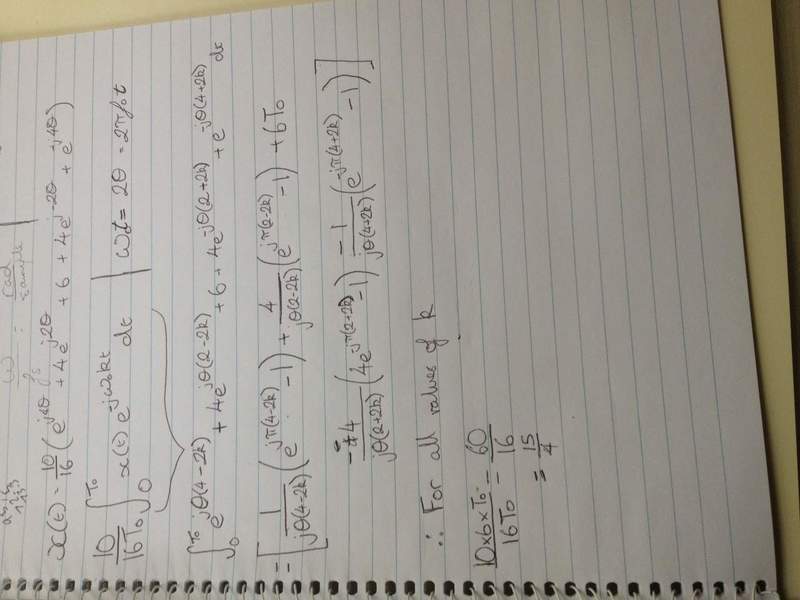 ω / fs = rad / sample
x(t) = 10/16 ( e^{j4θ} + 4e^{j2θ} + 6 + 4e^{j-2θ} + e^{-j4θ} )
10/16T₀ ∫₀^{T₀} x(t) e^{-jω₀kt} dt | ωt = 2θ = 2πf₀t
∫₀^{T₀} e^{jθ(4-2k)} + 4e^{jθ(2-2k)} + 6 + 4e^{-jθ(2+2k)} + e^{-jθ(4+2k)} dt
= [ 1/jθ(4-2k) ( e^{jπ(4-2k)} - 1 ) + 4/jθ(2-2k) ( e^{jπ(2-2k)} - 1 ) + 6T₀
- 4/jθ(2+2k) ( 4e^{-jπ(2+2k)} - 1 ) - 1/jθ(4+2k) ( e^{-jπ(4+2k)} - 1 ) ]
∴ For all values of k
10×6×T₀ / 16T₀ = 60/16
= 15/4